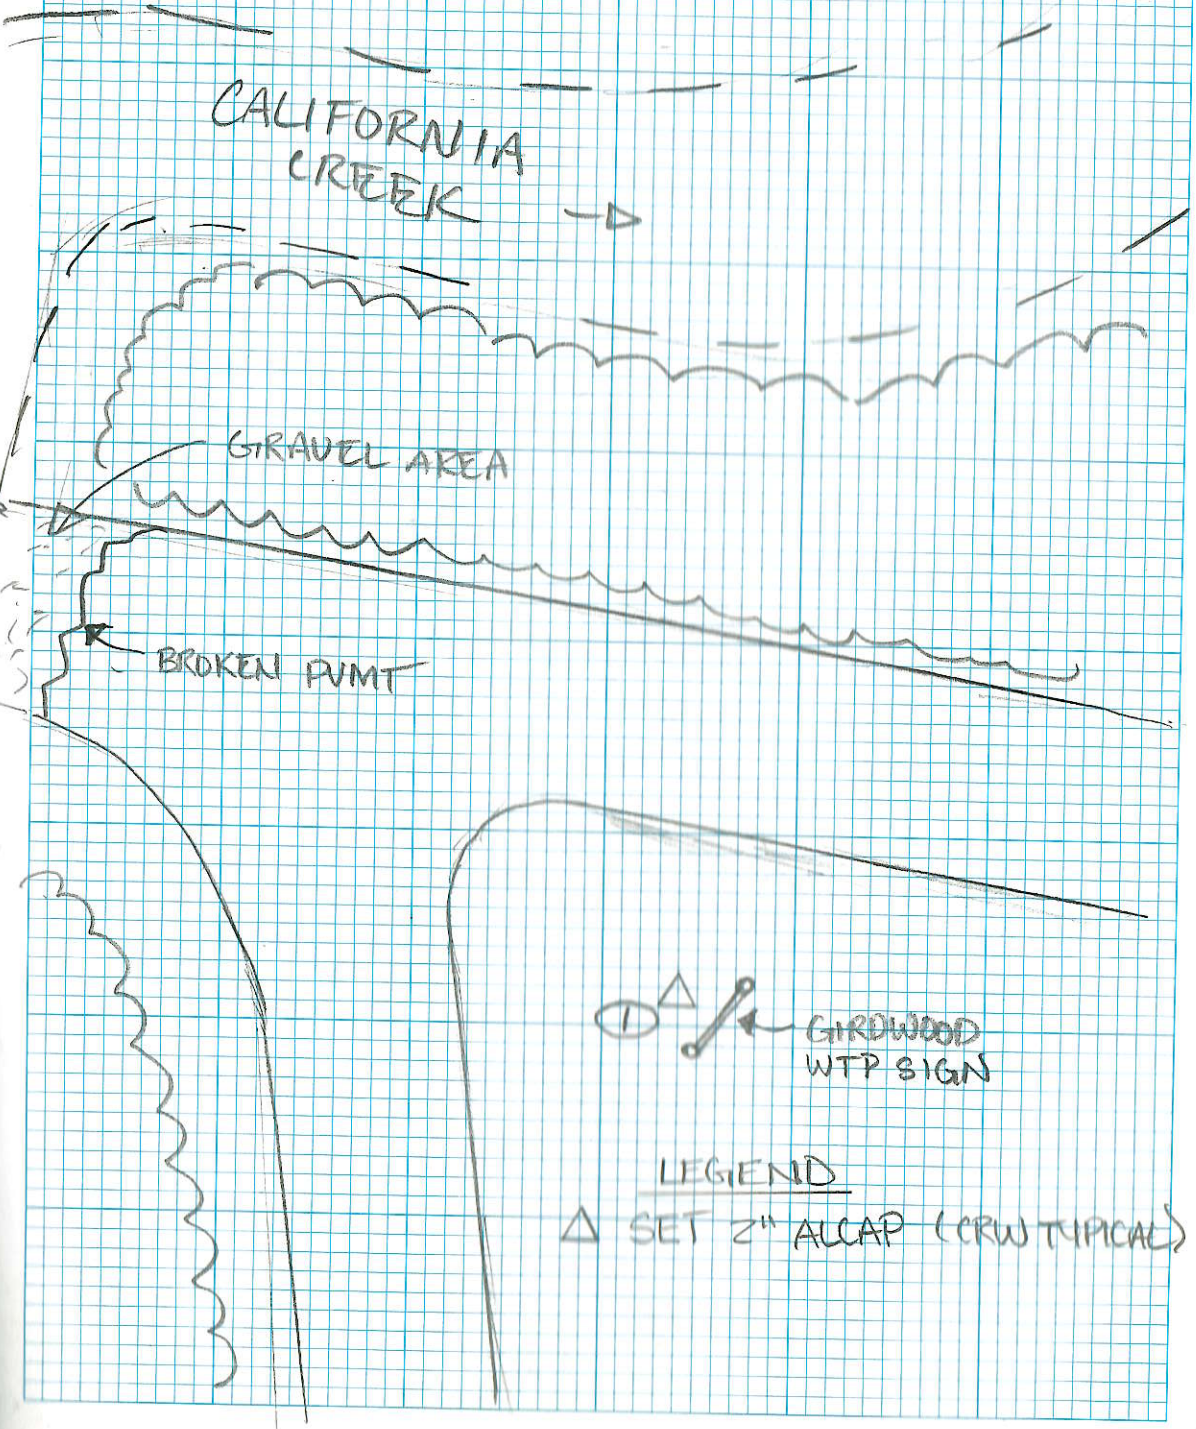 CALIFORNIA
CREEK
GRAVEL AREA
BROKEN PVMT
1
GIRDWOOD
WTP SIGN
LEGEND
△ SET 2" ALCAP (CRW TYPICAL)